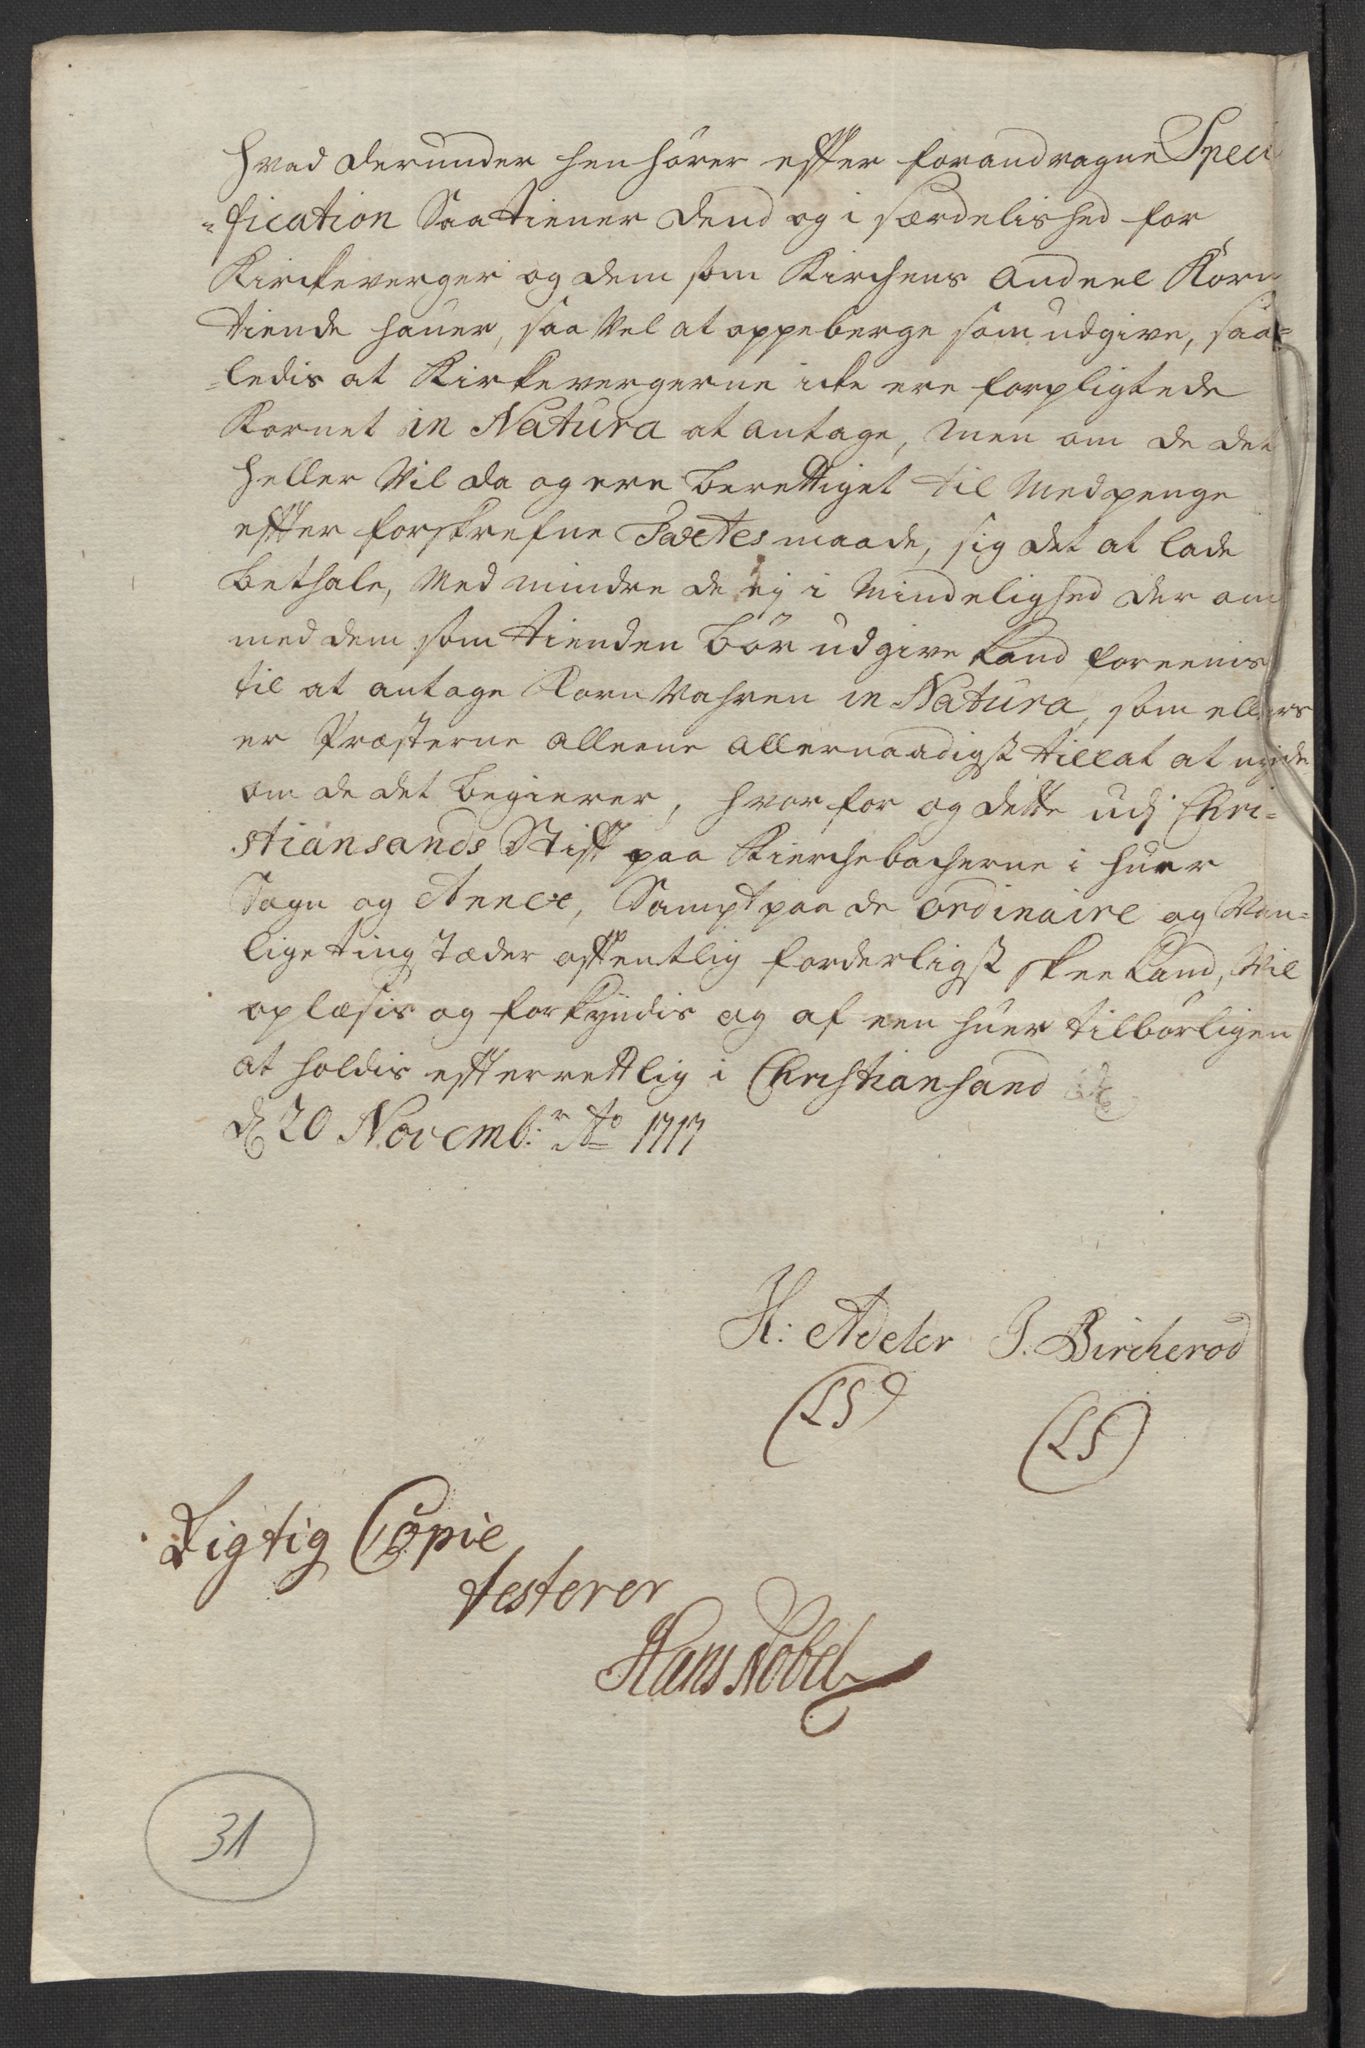 hvad derunder henhörer effter forandragne Speci
=fication Saa tiener dend og i særdelished for
Kirkeverger og dem som Kirchens Andeel Korn
tiende haver, saa vel at oppeberge som udgive, saa=
=ledis at Kirkevergerne icke ere forpligtede
Kornet in Natura at antage, men om de det
heller vil da og ere berettiget til med penge
effter forskrefne Taxtes maade, sig det at lade
bethale, med mindre de ej i Mindelighed der om
med dem som tienden bör udgive kand foreenis
til at antage Korn Vahren in Natura, som ellers
er Præsterne alleene allernaadigst tillat at nyde
om de det begierer, hvorfor og dette udj Chri=
stiansands Stifft paa Kierchebacherne i huer
Sogn og Annex, Sampt paa de ordinaire og Van=
lige ting Tæder offentlig forderligst skee kand, Vil
oplæsis og forkyndis og af een huer tilbörligen
at holdis effterrettlig i Christiansand
d 20 Novemb:r Ao 1717
H: Adeler J. Bircherod
(LS) (LS)
Rigtig Copie
testerer
Hans Nobel
31